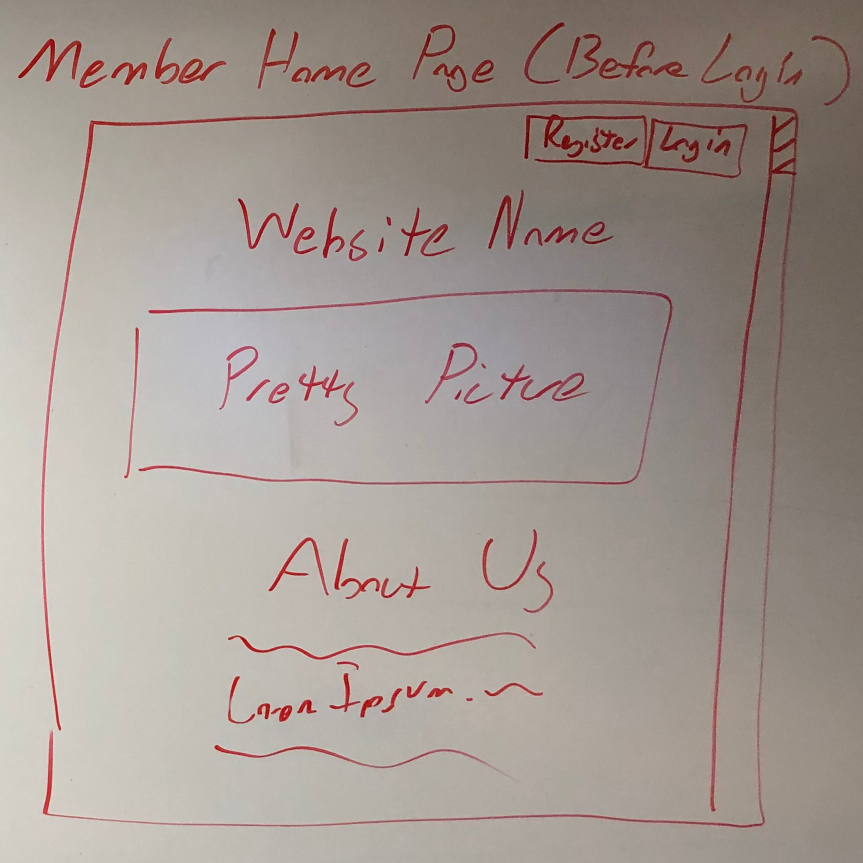 Member Home Page (Before Login)
Register Login
Website Name
Pretty Picture
About Us
Lorem Ipsum.